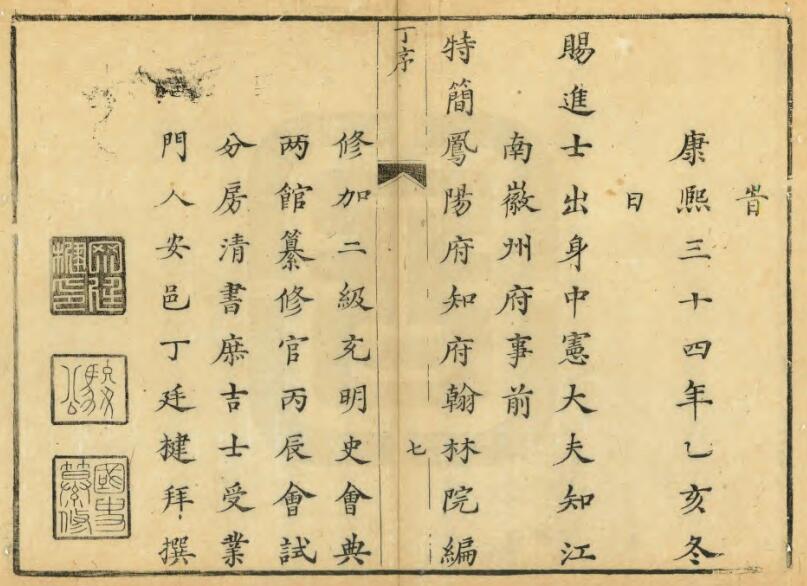 旹
康熙三十四年乙亥冬
日
賜進士出身中憲大夫知江
南徽州府事前
特簡鳳陽府知府翰林院編
丁序
七
修加二級充明史會典
两館纂修官丙辰會試
分房清書庶吉士受業
門人安邑丁廷楗拜撰
廷楗印
駿公
國史纂修